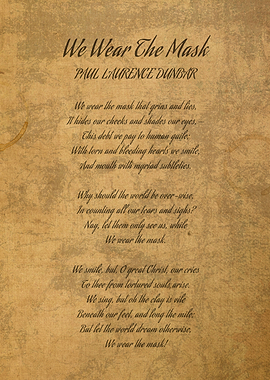 We Wear The Mask
PAUL LAURENCE DUNBAR
We wear the mask that grins and lies,
It hides our cheeks and shades our eyes,
This debt we pay to human guile;
With torn and bleeding hearts we smile,
And mouth with myriad subtleties.
Why should the world be over-wise,
In counting all our tears and sighs?
Nay, let them only see us, while
We wear the mask.
We smile, but, O great Christ, our cries
To thee from tortured souls arise.
We sing, but oh the clay is vile
Beneath our feet, and long the mile;
But let the world dream otherwise,
We wear the mask!